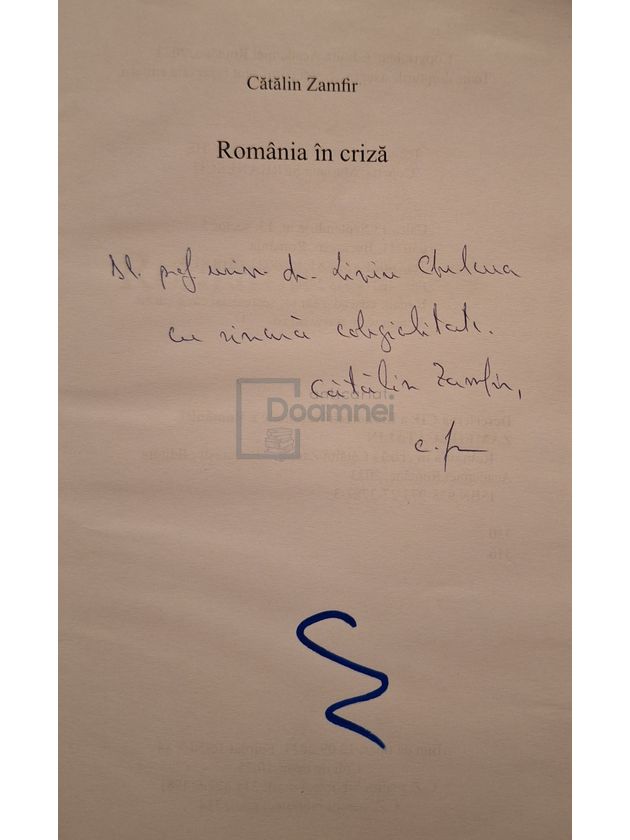 Cătălin Zamfir
România în criză
Dl. prof univ. dr. Liviu
cu sinceră colegialitate.
Cătălin Zamfir,
anticariat
Doamnei